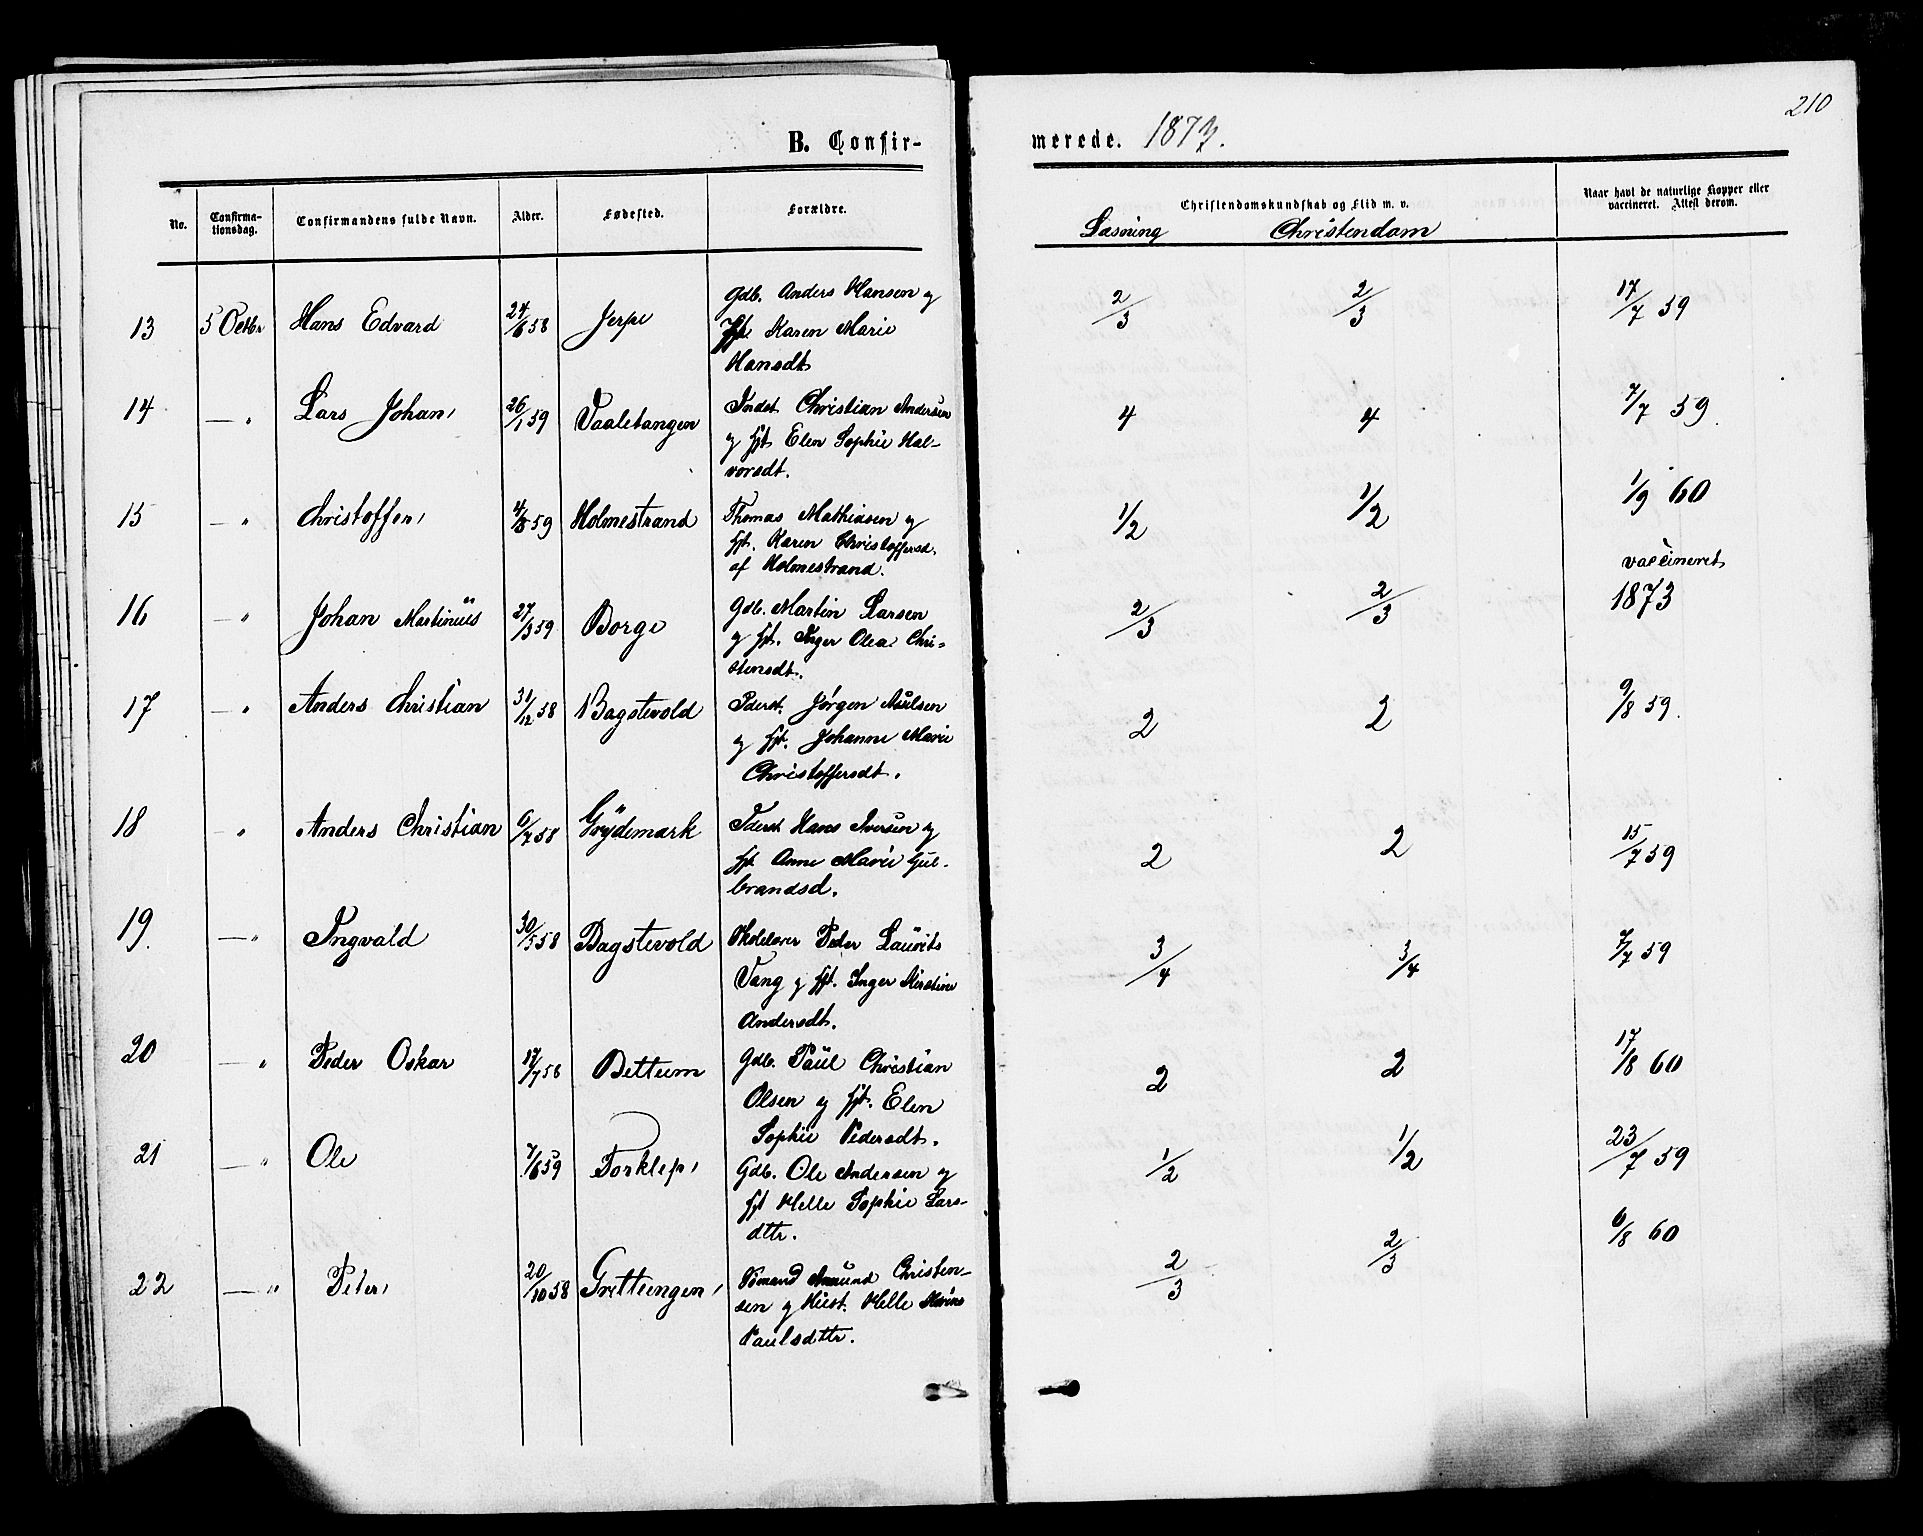 210
B. Confirmerede. 1873.
No. Confirmationsdag. Confirmandens fulde Navn. Alder. Fødested. Forældre. Christendomskundskab og Flid m. v. Naar havt de naturlige Kopper eller vaccineret. Attest derom.
Læsning Christendom
13 5 Octbr Hans Edvard 24/8 58 Jerpe Gdb. Anders Hansen og 2/3 2/3 17/7 59
Karen Marie
Hansdt
14 — " Lars Johan 26/1 59 Vaaletangen Indst Christian Andersen 4 4 7/7 59.
og Hst Elen Sophie Hal-
vorsdt.
15 — " Christoffer 4/8 59 Holmestrand Thomas Mathiasen og 1/2 1/2 1/9 60
Hst. Karen Christoffersd.
af Holmestrand.
vaccineret
16 — " Johan Martinius 27/3 59 Borge Gdb. Martin Larsen 2/3 2/3 1873
og Hst. Inger Olea Chri-
stensdt.
17 — " Anders Christian 31/12 58 Bagstevold Iderst. Jørgen Paulsen 2 2 9/8 59.
og Hst. Johanne Marie
Christoffersdt.
18 — " Anders Christian 6/7 58 Grydemark Iderst Hans Iversen og 2 2 15/7 59
Hst Anne Marie Gul-
brandsd.
19. — " Ingvald 30/5 58 Bagstevold Skolelærer Peder Laurits 3/4 3/4 7/7 59
Vang og Hst. Inger Kirstine
Andersdt.
20 — " Peder Oskar 17/7 58 Bettum Gdb. Paul Christian 2 2 17/8 60
Olsen og Hst. Elen
Sophie Pedersdt.
21 — " Ole 7/6 59 Torklep Gdb. Ole Andersen og 1/2 1/2 23/7 59
Hst Helle Sophie Lars-
dttr.
22 — " Peter 20/10 58 Grettungen Sømand Amund Christen- 2/3 2/3 6/8 60
sen og Hust. Helle Marine
Paulsdttr.